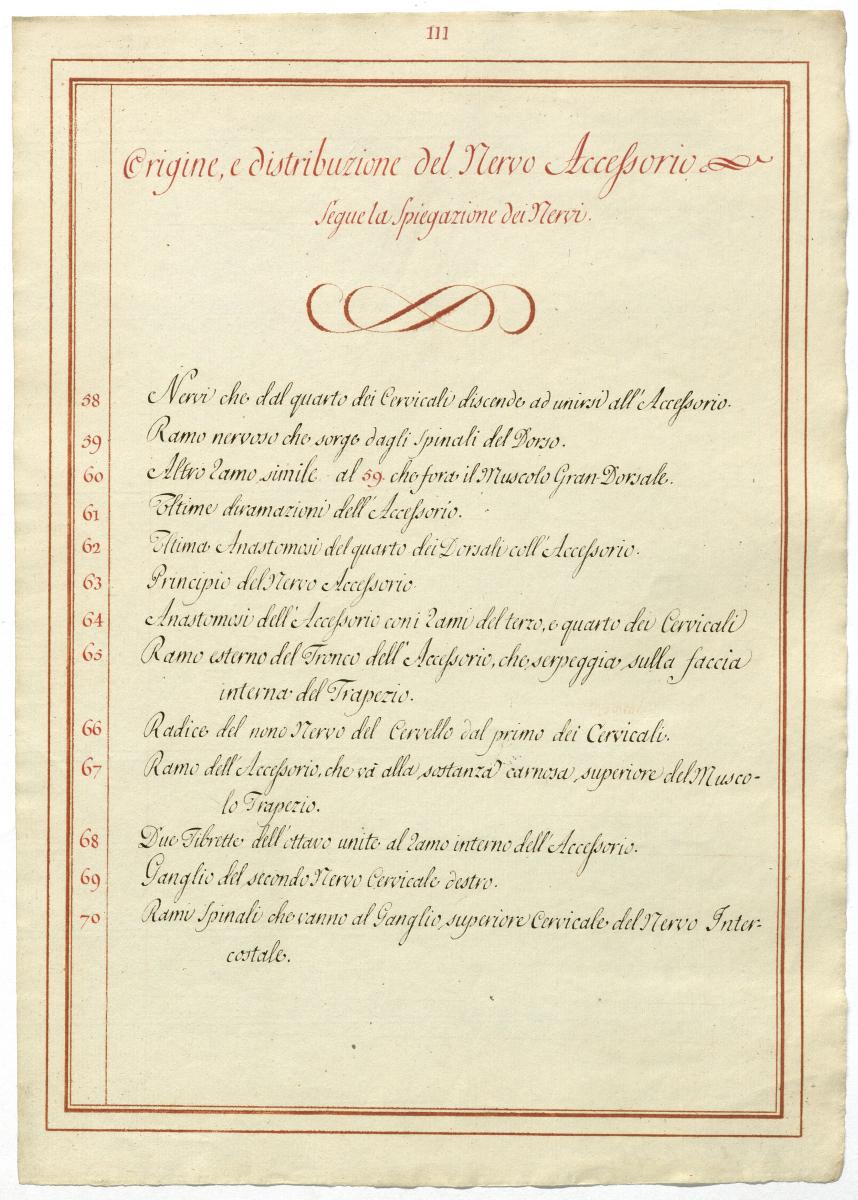 111
Origine, e distribuzione del Nervo Accessorio
Segue la Spiegazione dei Nervi.
58 Nervi che dal quarto dei Cervicali discende ad unirsi all'Accessorio.
59 Ramo nervoso che sorge dagli Spinali del Dorso.
60 Altro Ramo simile al 59. che fora il Muscolo Gran-Dorsale.
61 Ultime diramazioni dell'Accessorio.
62 Ultima Anastomosi del quarto dei Dorsali coll'Accessorio.
63 Principio del Nervo Accessorio
64 Anastomosi dell'Accessorio con i Rami del terzo, e quarto dei Cervicali
65 Ramo esterno del Tronco dell'Accessorio, che serpeggia sulla faccia
interna del Trapezio.
66 Radice del nono Nervo del Cervello dal primo dei Cervicali.
67 Ramo dell'Accessorio, che và alla sostanza carnosa superiore del Musco-
lo Trapezio.
68 Due Fibrette dell'ottavo unite al Ramo interno dell'Accessorio.
69 Ganglio del secondo Nervo Cervicale destro.
70 Rami Spinali che vanno al Ganglio superiore Cervicale del Nervo Inter-
costale.